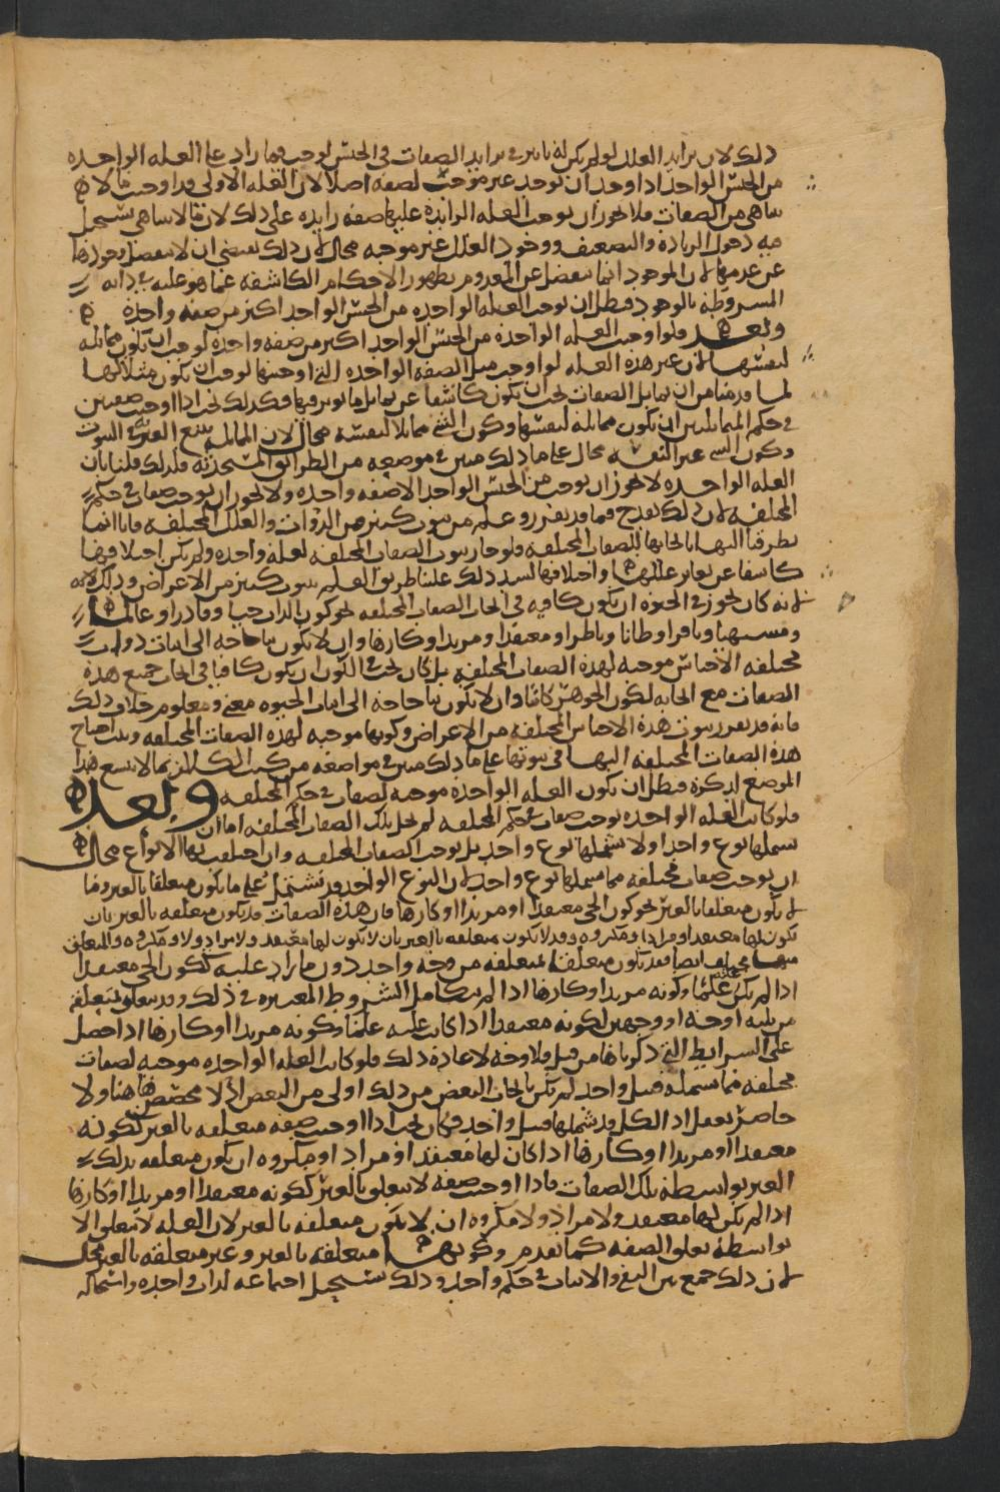 ذلك لان تزايد العلل لو لم يكن له تاثير في تزايد الصفات في الجنس لوجب فيما زاد على العله الواحده
من الجنس الواحد اذا وجد ان يوجد غير موجب لصفه اصلا لان العله الاولى قد اوجبت ما لا
يتناهى من الصفات فلا يجوز ان يوجب العله الزايده عليها صفه زايده على ذلك لان ما لا يتناهى يستحيل
فيه دخول الزياده والتضعيف ووجود العلل غير موجبه محال لان ذلك يقتضي ان لا ينفصل وجودها
عن عدمها لان الموجود انما ينفصل عن المعدوم بظهور الاحكام الكاشفه عما هو عليه في ذاته
المشروطه بالوجود فبطل ان يوجب العله الواحده من الجنس الواحد اكثر من صفه واحده
وبعد فلو اوجبت العله الواحده من الجنس الواحد اكثر من صفه واحده لوجب ان تكون مماثله
لنفسها لان غير هذه العله لو اوجب مثل الصفه الواحده التي اوجبتها لوجب ان يكون مثلا لها
لما قدمنا من ان تماثل الصفات يجب ان يكون كاشفا عن تماثل ما يوثر فيها فكذلك يجب اذا اوجبت صفتين
في حكم المتماثلتين ان تكون مماثله لنفسها وكون الشي مماثلا لنفسه محال لان المماثله تتبع الغيريه في الثبوت
وكون الشي غير النفسه محال على ما ذلك مبين في موضعه من الطرائق المتحدثه فلذلك قلنا بان
العله الواحده لا يجوز ان يوجب من الجنس الواحد الا صفه واحده ولا يجوز ان يوجب صفات في حكم
المختلفه لان ذلك يقدح فيما قد تقرر وعلم من ثبوت كثير من الذوات والعلل المختلفه فانا انما
تطرقنا اليها بايجابها للصفات المختلفه فلو جاز ثبوت الصفات المختلفه لعله واحده ولم يكن اختلافها
كاشفا عن تغاير عللها واختلافها لسد ذلك علينا طريق العلم بثبوت كثير من الاعراض وذلك لانه
لانه كان يجوز في الحيوه ان تكون كافيه في ايجاب الصفات المختلفه نحو كون الذات حيا وقادرا وعالما
ومشتهيا ونافرا وظانا وناظرا ومعتقدا ومريدا وكارها وان لا يكون بنا حاجه الى اثبات ذوات
مختلفه الاجناس موجبه لهذه الصفات المختلفه بل كان يجب في الكون ان يكون كافيا في ايجاب جميع هذه
الصفات مع ايجابه لكون الجوهر كائنا وان لا يكون بنا حاجه الى اثبات الحيوه معنى ومعلوم خلاف ذلك
فانه قد تقرر ثبوت هذه الاجناس المختلفه من الاعراض وكونها موجبه لهذه الصفات المختلفه وثبت احتياج
هذه الصفات المختلفه اليها في ثبوتها على ما ذلك مبين في مواضعه من كتب الكلام بما لا يتسع هذا
الموضع لذكره فبطل ان تكون العله الواحده موجبه لصفات في حكم المختلفه وبعد
فلو كانت العله الواحده توجب صفات في حكم المختلفه لم تخل تلك الصفات المختلفه اما ان
يشملها نوع واحد او لا يشملها نوع واحد بل يوجب الصفات المختلفه وان اختلفت بها الانواع محال
ان يوجب صفات مختلفه مما يشملها نوع واحد لان النوع الواحد قد يشتمل على ما يكون متعلقا بالغير وما
لا يكون متعلقا بالغير نحو كون الحي معتقدا او مريدا او كارها فان هذه الصفات قد تكون متعلقه بالغير بان
تكون لها معتقد او مراد او مكروه وقد لا تكون متعلقه بالغير بان لا تكون لها معتقد ولا مراد ولا مكروه والمتعلق
منها مختلف ايضا فقد تكون متعلقا بمتعلقه من وجه واحد دون ما زاد عليه ككون الحي معتقدا
اذا لم يكن علما وكونه مريدا وكارها اذا لم يتكامل الشروط المعتبره في ذلك وقد يتعلق بمتعلقه
من ثلثه اوجه او وجهين لكونه معتقدا اذا كانت عليه علما وكونه مريدا او كارها اذا حصل
على الشرايط التي ذكرناها من قبل فلا وجه لاعادة ذلك فلو كانت العله الواحده موجبه لصفات
مختلفه مما يشمله قبيل واحد لم يكن بايجاب البعض من ذلك اولى من البعض اذ لا مخصص هاهنا ولا
حاصر يعقل اذ الكل قد شملها قبيل واحد فكان يجب اذا اوجبت صفه متعلقه بالغير ككونه
معتقدا او مريدا او كارها اذا كان لها معتقد او مراد او مكروه ان تكون متعلقه بذلك
الغير بواسطه تلك الصفات فاذا اوجبت صفه لا تتعلق بالغير ككونه معتقدا او مريدا او كارها
اذا لم يكن لها معتقد ولا مراد ولا مكروه ان لا تكون متعلقه بالغير لان العله لا تتعلق الا
بواسطه تعلق الصفه كما تقدم وكونها متعلقه بالغير وغير متعلقه بالغير محال
لان ذلك جمع بين النفي والاثبات في حكم واحد وذلك يستحيل اجتماعه لذات واحده واشماله